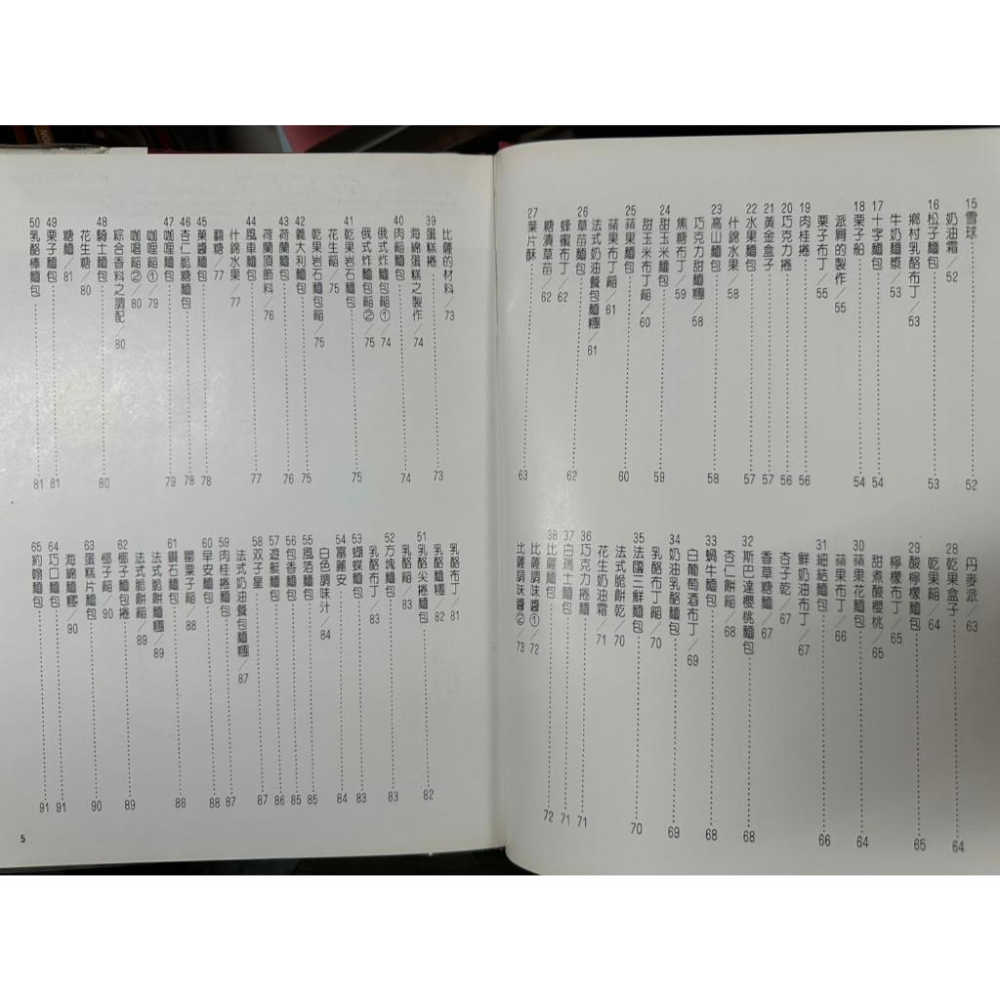 15雪球……52
奶油霜／52
鄉村乳酪布丁／53
16松子麵包……53
牛奶麵漿／53
17十字麵包……54
18栗子船……54
派唇的製作／55
栗子布丁／55
19肉桂捲……56
20巧克力捲……56
21黃金盒子……57
22水果麵包……57
什錦水果／58
23高山麵包……58
巧克力甜麵糰／58
焦糖布丁／59
24甜玉米麵包……59
甜玉米布丁餡／60
25蘋果麵包……60
蘋果布丁餡／61
法式奶油餐包麵糰／61
26草苗麵包……62
蜂蜜布丁／62
糖漬草苗／62
27葉片酥……63
丹麥派／63
28乾果盒子……64
乾果餡／64
29酸檸檬麵包……65
檸檬布丁／65
甜煮酸櫻桃／65
30蘋果花麵包……66
蘋果布丁／66
31細結麵包……66
鮮奶油布丁／67
杏子乾／67
香草糖麵／67
32斯巴達櫻桃麵包……68
杏仁餅餡／68
33蝸牛麵包……68
白葡萄酒布丁／69
34奶油乳酪麵包……69
乳酪布丁餡／70
35法國三鮮麵包……70
法式脆餅乾／70
花生奶油霜／71
36巧克力捲麵……71
37白瑞士麵包……71
38比薩麵包……72
比薩調味醬①／72
比薩調味醬②／73
比薩的材料／73
39蛋糕捲……73
海綿蛋糕之製作／74
40肉餡麵包……74
俄式炸麵包餡①／74
俄式炸麵包餡②／75
41乾果岩石麵包……75
花生餡／75
乾果岩石麵包餡／75
42義大利麵包……75
43荷蘭麵包……76
荷蘭頂飾料／76
44風車麵包……77
什錦水果／77
翻糖／77
45菓醬麵包……78
46杏仁脆糖麵包……78
47咖哩麵包……79
咖哩餡①／79
咖哩餡②／80
綜合香料之調配／80
48騎士麵包……80
花生糖／80
糖麵／81
49栗子麵包……81
50乳酪棒麵包……81
乳酪布丁／81
乳酪麵糰／82
51乳酪尖捲麵包……82
乳酪餡／83
52方塊麵包……83
乳酪布丁／83
53蝴蝶麵包……83
54富麗安……84
白色調味汁／84
55風箔麵包……85
56包香麵包……85
57遊艇麵包……86
58双子星……87
法式奶油餐包麵糰／87
59肉桂捲麵包……87
60早安麵包……88
罌粟子餡／88
61鑽石麵包……88
法式脆餅麵糰／89
法式脆餅餡／89
62椰子麵包捲……89
椰子餡／90
63蛋糕片麵包……90
海綿麵糰／90
64巧口麵包……91
65約翰麵包……91
5